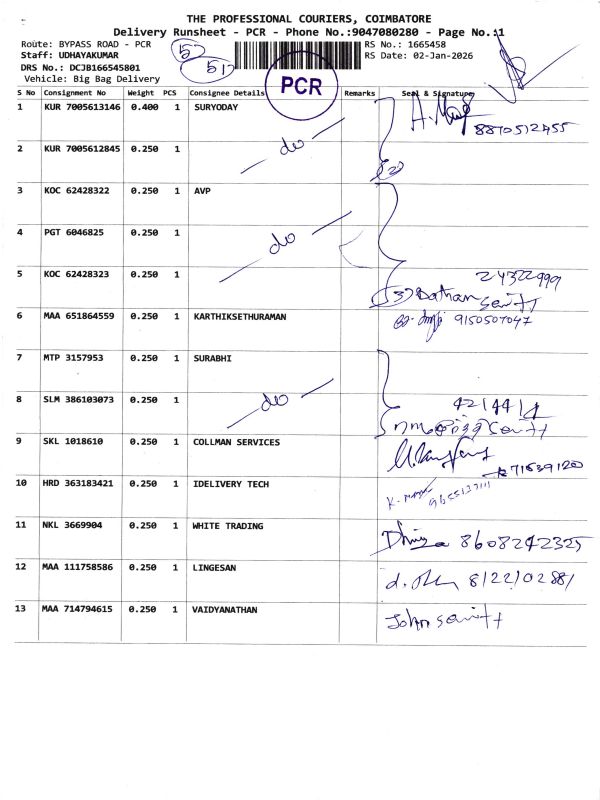 THE PROFESSIONAL COURIERS, COIMBATORE
Delivery Runsheet - PCR - Phone No.:9047080280 - Page No.:1
Route: BYPASS ROAD - PCR
Staff: UDHAYAKUMAR
DRS No.: DCJB166545801
Vehicle: Big Bag Delivery
52
51
PCR
RS No.: 1665458
RS Date: 02-Jan-2026
S No Consignment No Weight PCS Consignee Details Remarks Seal & Signature
1 KUR 7005613146 0.400 1 SURYODAY
8870512455
2 KUR 7005612845 0.250 1 — do —
3 KOC 62428322 0.250 1 AVP
4 PGT 6046825 0.250 1 — do —
5 KOC 62428323 0.250 1 24322999
6 MAA 651864559 0.250 1 KARTHIKSETHURAMAN 9150507047
7 MTP 3157953 0.250 1 SURABHI
8 SLM 386103073 0.250 1 — do — 4214414
9 SKL 1018610 0.250 1 COLLMAN SERVICES
10 HRD 363183421 0.250 1 IDELIVERY TECH
11 NKL 3669904 0.250 1 WHITE TRADING 8608242325
12 MAA 111758586 0.250 1 LINGESAN
13 MAA 714794615 0.250 1 VAIDYANATHAN John